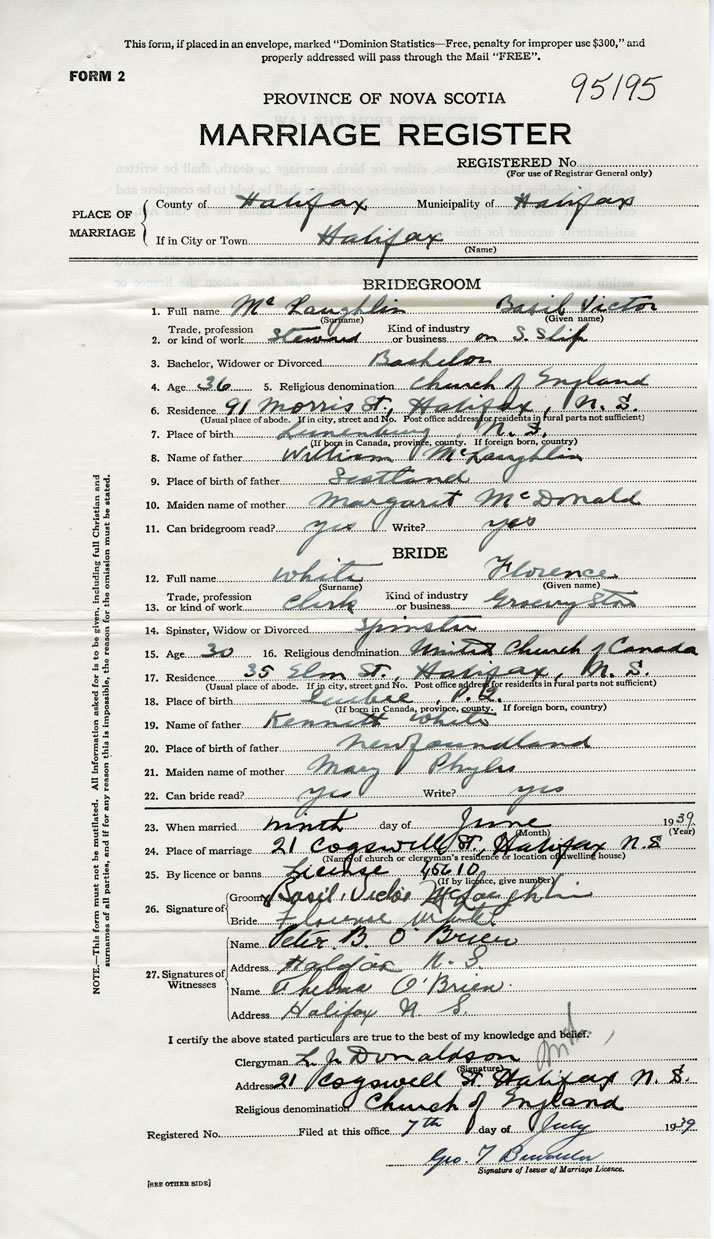 This form, if placed in an envelope, marked "Dominion Statistics—Free, penalty for improper use $300," and
properly addressed will pass through the Mail "FREE".
FORM 2
95195
PROVINCE OF NOVA SCOTIA
MARRIAGE REGISTER
REGISTERED No.
(For use of Registrar General only)
PLACE OF MARRIAGE
County of Halifax Municipality of Halifax
If in City or Town Halifax
(Name)
BRIDEGROOM
1. Full name McLaughlin Basil Victor
(Surname) (Given name)
2. Trade, profession or kind of work Steward Kind of industry or business on S. Ship
3. Bachelor, Widower or Divorced Bachelor
4. Age 36 5. Religious denomination Church of England
6. Residence 91 Morris St., Halifax, N. S.
(Usual place of abode. If in city, street and No. Post office address for residents in rural parts not sufficient)
7. Place of birth Lunenburg, N. S.
(If born in Canada, province, county. If foreign born, country)
8. Name of father William McLaughlin
9. Place of birth of father Scotland
10. Maiden name of mother Margaret McDonald
11. Can bridegroom read? yes Write? yes
BRIDE
12. Full name White Florence
(Surname) (Given name)
13. Trade, profession or kind of work Clerk Kind of industry or business Grocery Store
14. Spinster, Widow or Divorced Spinster
15. Age 30 16. Religious denomination United Church of Canada
17. Residence 35 Elm St., Halifax, N. S.
(Usual place of abode. If in city, street and No. Post office address for residents in rural parts not sufficient)
18. Place of birth Quebec, P. Q.
(If born in Canada, province, county. If foreign born, country)
19. Name of father Kenneth White
20. Place of birth of father Newfoundland
21. Maiden name of mother Mary
22. Can bride read? yes Write? yes
23. When married ninth day of June 1939
(Month) (Year)
24. Place of marriage 21 Cogswell St., Halifax N S
(Name of church or clergyman's residence or location of dwelling house)
25. By licence or banns License 45610
(If by licence, give number)
26. Signature of
Groom Basil Victor McLaughlin
Bride Florence White
27. Signatures of Witnesses
Name Peter B. O'Brien
Address Halifax N. S.
Name Thelma O'Brien
Address Halifax N. S.
I certify the above stated particulars are true to the best of my knowledge and belief.
Clergyman L. J. Donaldson
(Signature)
Address 21 Cogswell St. Halifax N. S.
Religious denomination Church of England
Registered No. Filed at this office 7th day of July 1939
Geo. T
Signature of Issuer of Marriage Licence.
[SEE OTHER SIDE]
NOTE.—This form must not be mutilated. All information asked for is to be given, including full Christian and
surnames of all parties, and if for any reason this is impossible, the reason for the omission must be stated.